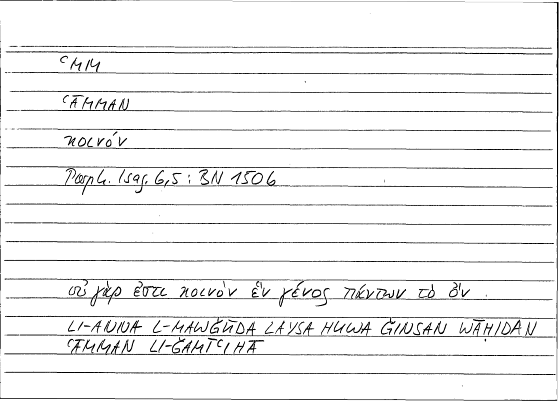 ʿMM
ʿĀMMAN
κοινόν
Porph. Isag. 6,5 : BN 150b
οὐ γάρ ἐστι κοινὸν ἓν γένος πάντων τὸ ὄν
LI-ANNA L-MAWǦŪDA LAYSA HUWA ǦINSAN WĀḤIDAN
ʿĀMMAN LI-ǦAMĪʿIHĀ